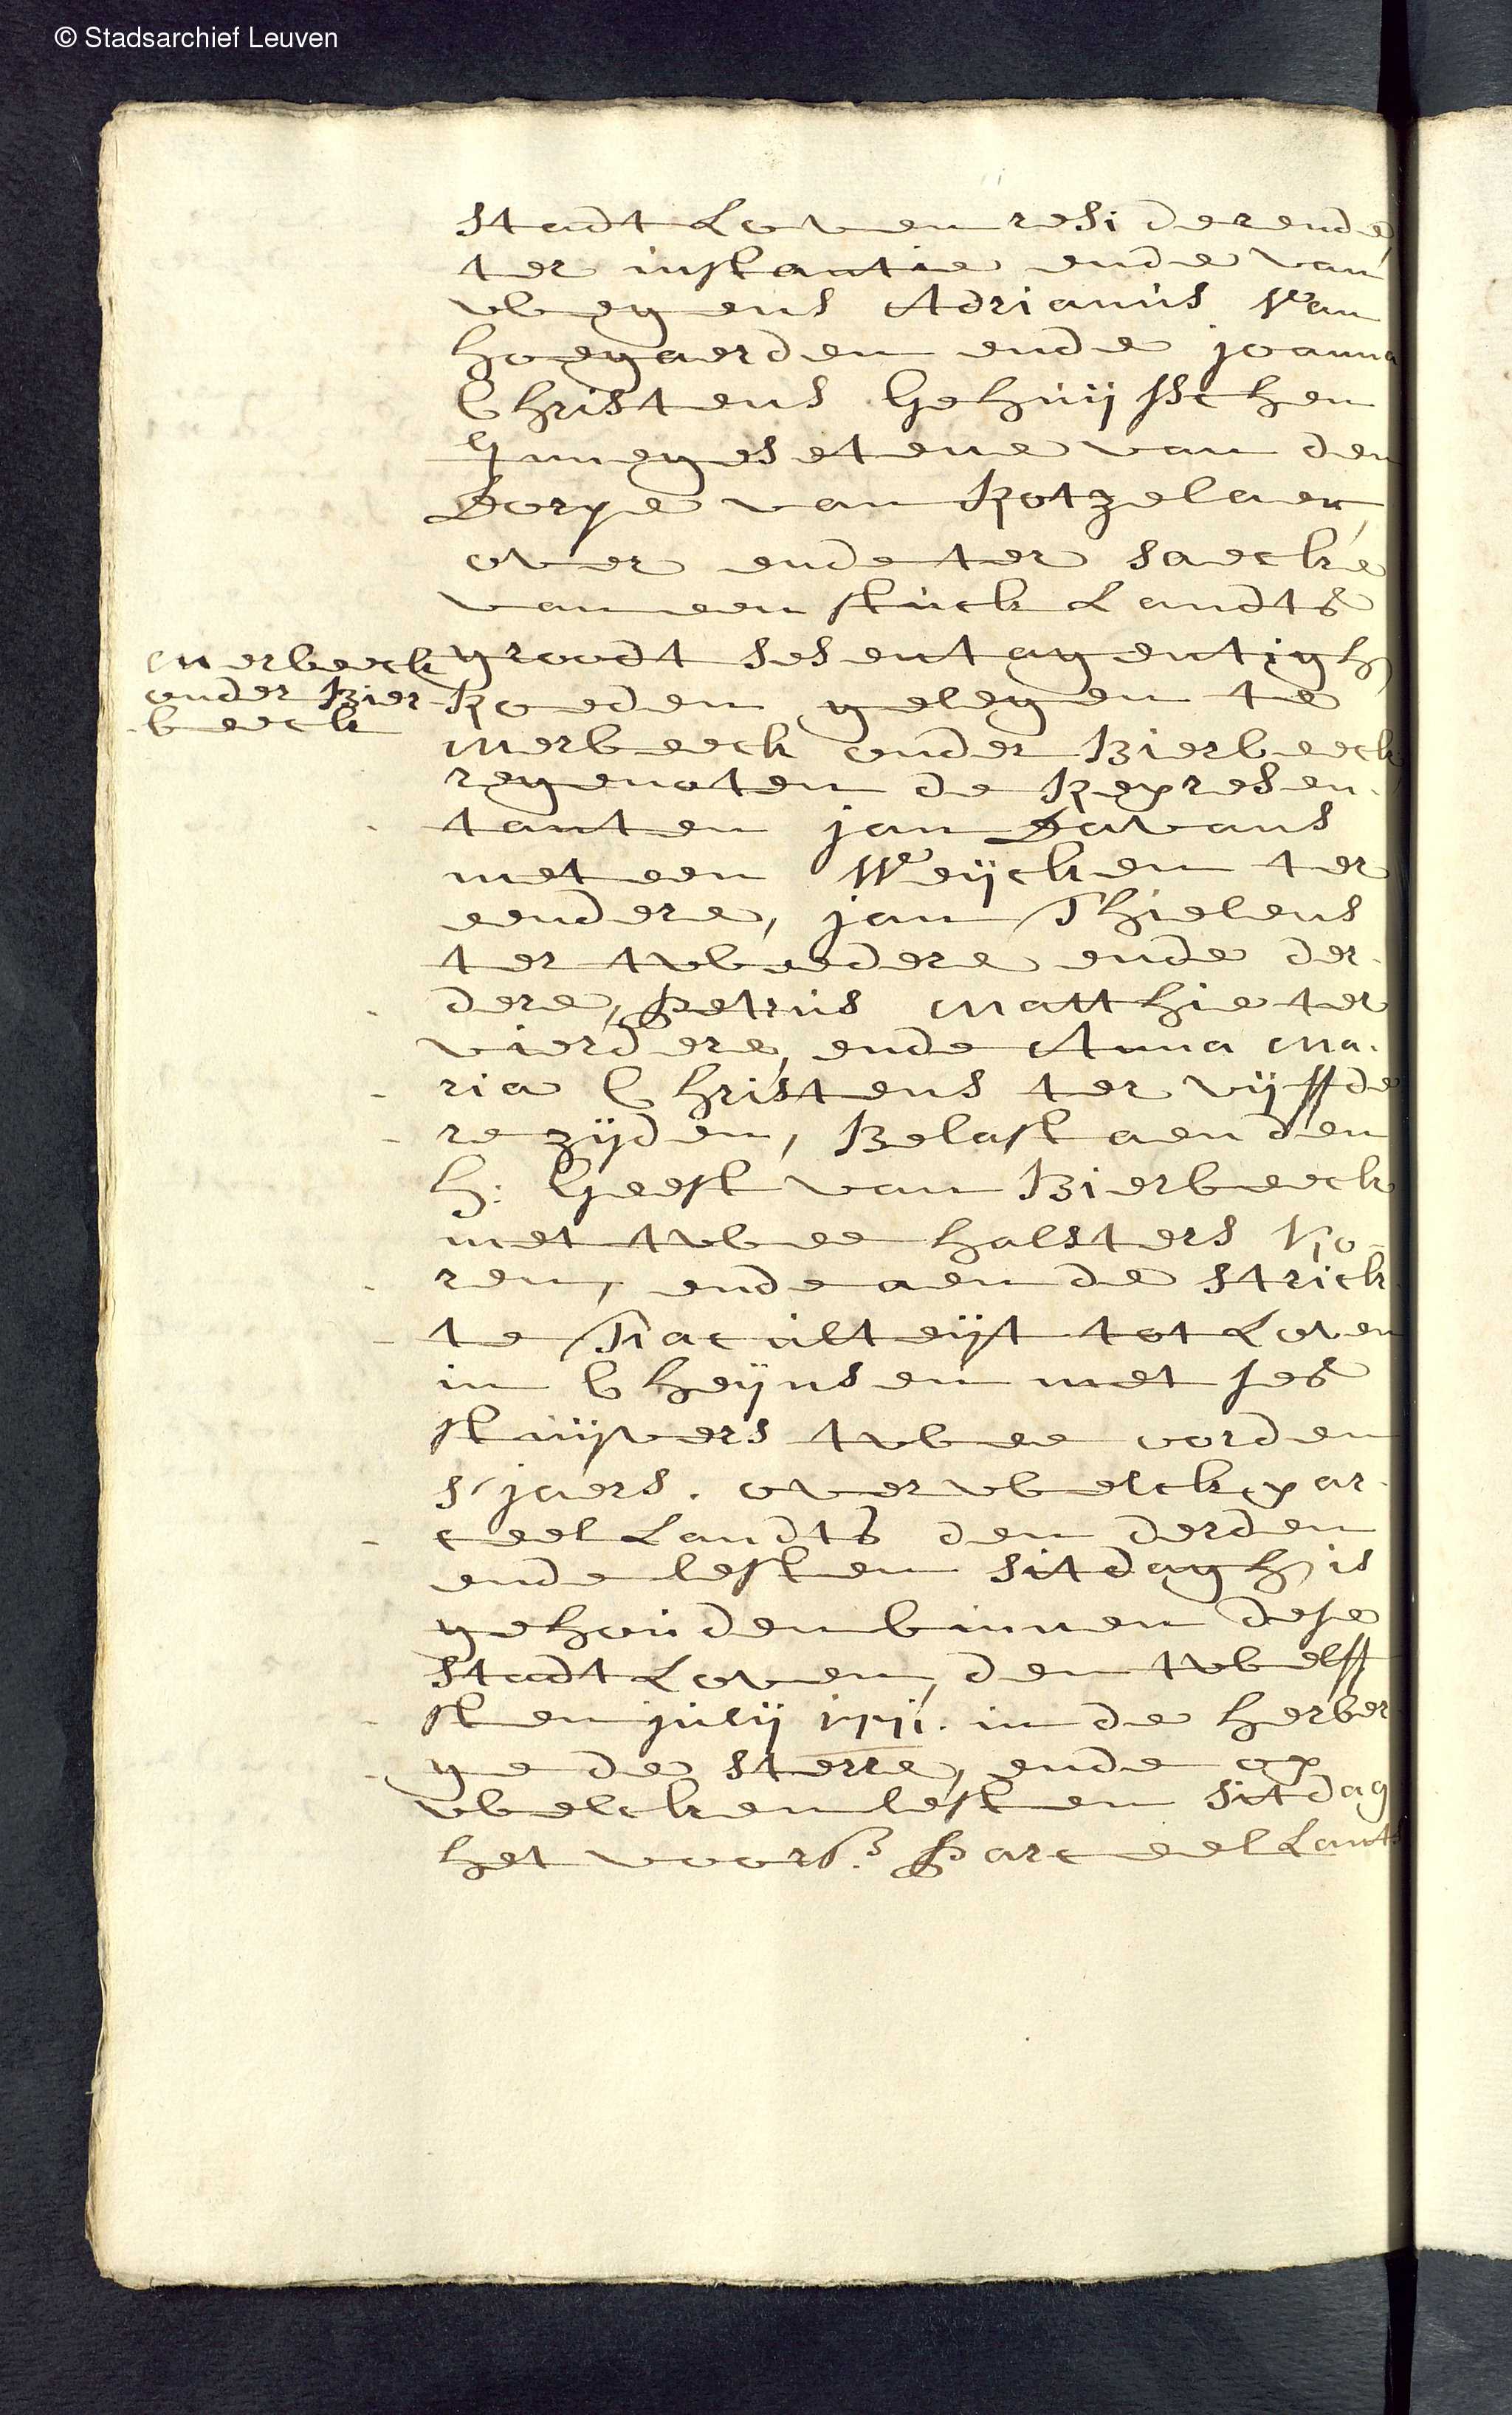 © Stadsarchief Leuven
Stadt Loven residerende
ter instantie ende van
wegens Adrianus Van
hoegaerden ende joanna
Christens Gehuijsschen
Innegesetene van den
Dorpe van Rotzelaer,
over ende ter saecke
van een stuck Landts
groodt sesentagentigh
Merbeeck
onder Bier
beeck
Roeden gelegen te
Merbeeck onder Bierbeeck
regenoten de Represen-
tanten jan Davans
met een Weijcken ter
eendere, jan Thielens
ter tweedere ende der-
dere, Petrus Matthie ter
vierdere, ende Anna Ma-
ria Christens ter vijffde
re zijden, Belast aen den
H: Geest van Bierbeeck
met twee halsters Ko-
ren, ende aen de strick
te Faculteijt tot Loven
in Cheijnsen met ses
stuijvers twee oorden
s'jaers. over welck par-
ceel Landts den derden
ende lesten sitdagh is
gehouden binnen dese
Stadt Loven, den twelff
sten julij 1771. in de herber
ge de sterre, ende op
welcken lesten sitdag
het voors. Parceel Landts